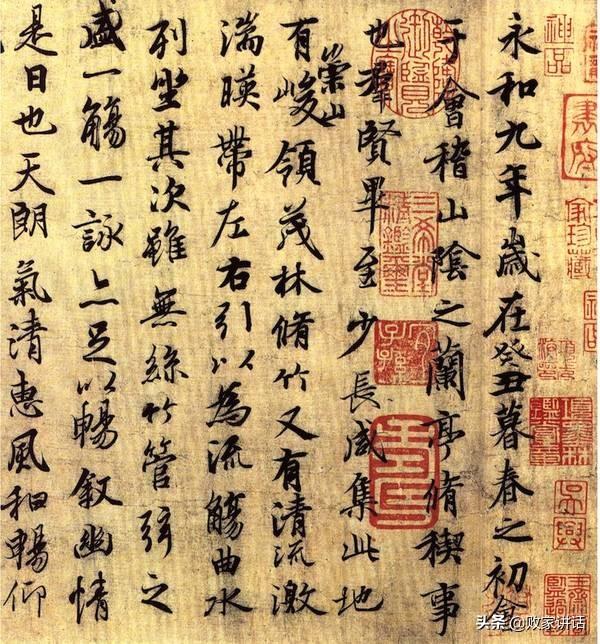 永和九年歲在癸丑暮春之初會
于會稽山陰之蘭亭脩稧事
也羣賢畢至少長咸集此地
有崇山峻領茂林脩竹又有清流激
湍暎帶左右引以為流觴曲水
列坐其次雖無絲竹管弦之
盛一觴一詠亦足以暢敘幽情
是日也天朗氣清惠風和暢仰
神品
三希堂精鑑璽
宜子孫
头条 @败家讲话